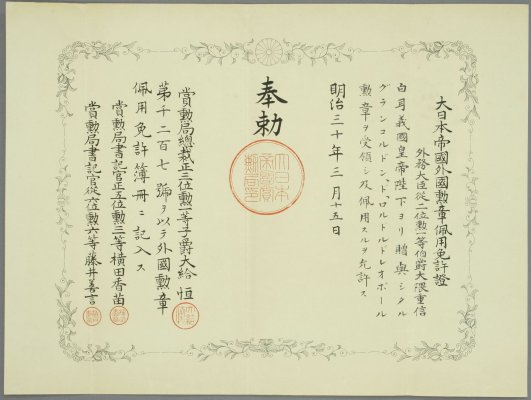 大日本帝國外國勲章佩用免許證
外務大臣從二位勲一等伯爵大隈重信
白耳義國皇帝陛下ヨリ贈與シタル
グランコルドン、ド、ロルドルドレオポール
勲章ヲ受領シ及佩用スルヲ允許ス
明治三十年三月十五日
奉勅
大日本帝國賞勲局印
賞勲局總裁正三位勲一等子爵大給恒
第千二百七號ヲ以テ外國勲章
佩用免許簿冊ニ記入ス
賞勲局書記官正五位勲三等横田香苗
賞勲局書記官從六位勲六等藤井善言